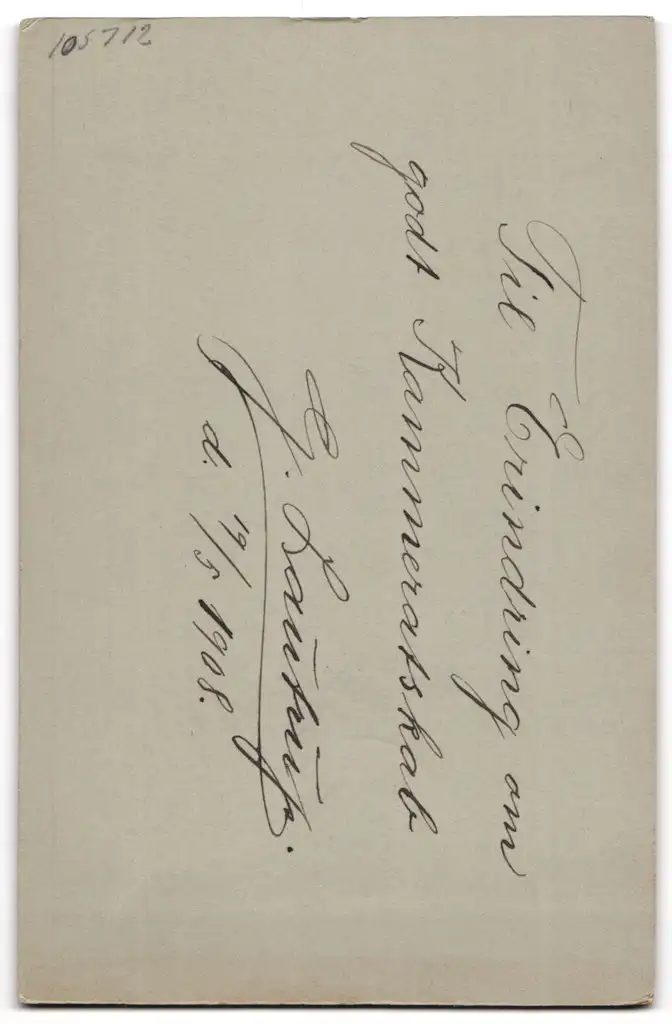 105712
Til Erindring om
godt Kammeratskab
d. 19/5 1908.